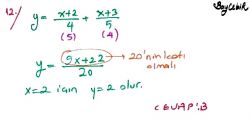 BayÇebir
12-) y = x+2/4 + x+3/5
(5) (4)
y = 9x+22/20 → 20'nin katı olmalı
x=2 için y=2 olur.
CEVAP: B